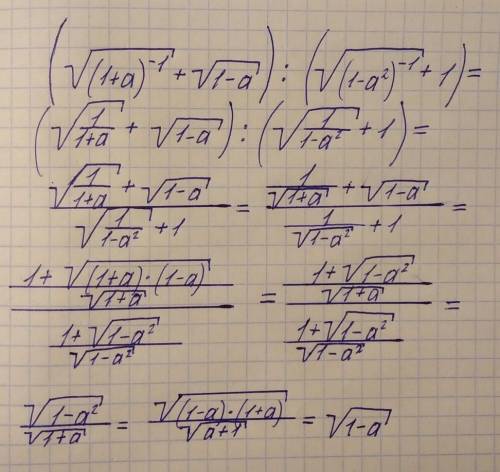 (√((1+a)⁻¹) + √(1-a)) : (√((1-a²)⁻¹) + 1) =
(√(1/(1+a)) + √(1-a)) : (√(1/(1-a²)) + 1) =
(√(1/(1+a)) + √(1-a))/(√(1/(1-a²)) + 1) = (1/√(1+a) + √(1-a))/(1/√(1-a²) + 1) =
((1+√((1+a)·(1-a)))/√(1+a))/((1+√(1-a²))/√(1-a²)) = ((1+√(1-a²))/√(1+a))/((1+√(1-a²))/√(1-a²)) =
√(1-a²)/√(1+a) = √((1-a)·(1+a))/√(a+1) = √(1-a)